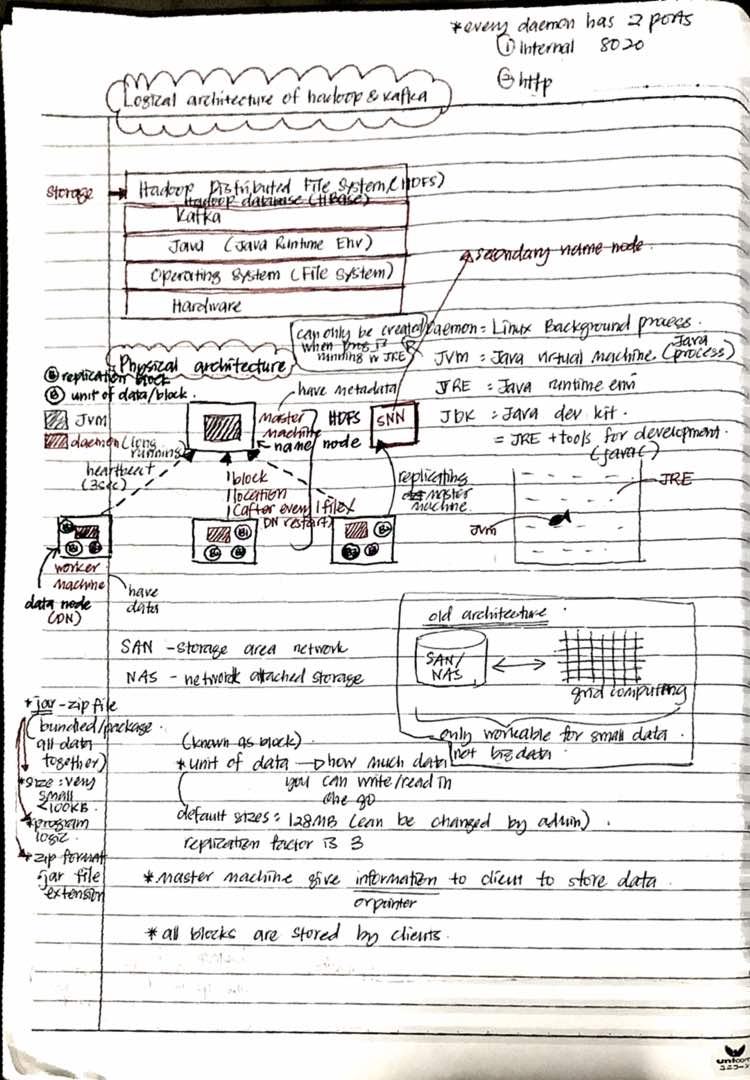 *every daemon has 2 ports
① Internal 8020
② http
Logical architecture of hadoop & kafka
storage
Hadoop Distributed File System (HDFS)
Hadoop database (HBase)
Kafka
Java (Java Runtime Env)
Operating System (File System)
Hardware
secondary name node
can only be created
when
running in JRE
Daemon = Linux Background process.
JVM = Java virtual machine (Java process)
JRE = Java runtime env
JDK = Java dev kit.
= JRE + tools for development.
(javac)
Physical architecture
B replication block
B unit of data/block.
JVM
daemon (long running)
have metadata
master machine
name node
HDFS
SNN
heartbeat
(3sec)
block
location
(after every
DN restart)
1 file
replicating
master
machine
JRE
JVM
B1
worker
machine
data node
(DN)
have
data
old architecture
SAN/
NAS
grid computing
only workable for small data
not big data
SAN - storage area network
NAS - network attached storage
*jar - zip file
(bundled/package
all data
together)
*size: very
small
<100KB
*program
logic
*zip format
jar file
extension
(known as block)
*unit of data → how much data
you can write/read in
one go
default sizes = 128MB (can be changed by admin).
replication factor is 3
*master machine give information to client to store data.
or pointer
*all blocks are stored by clients.
unicorn
ユニコーン